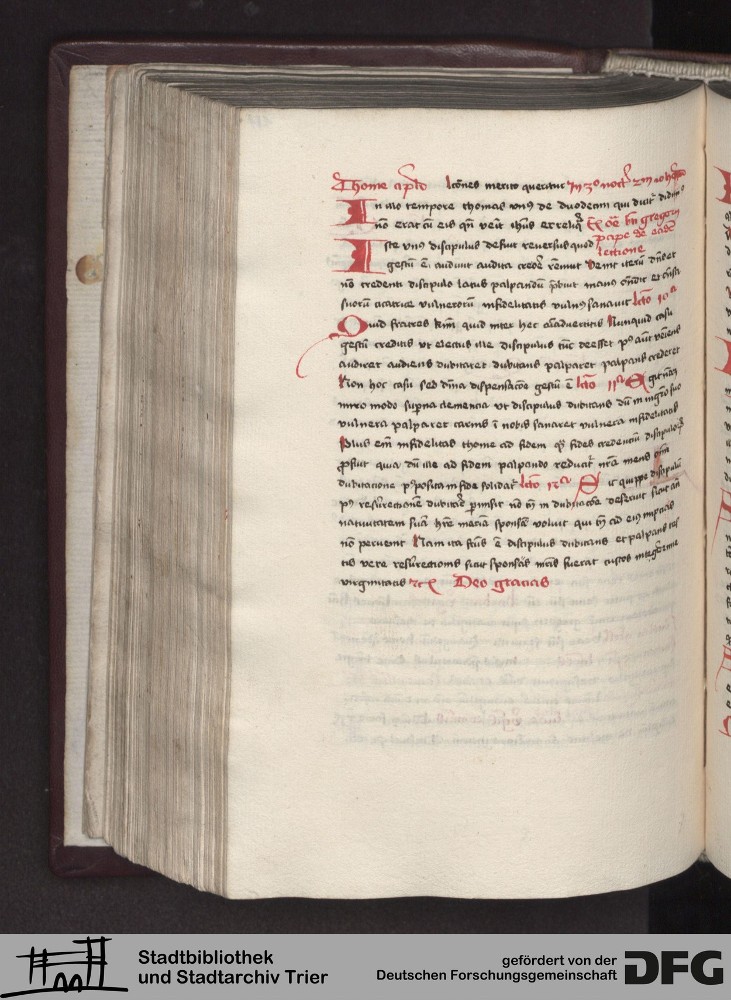 Thome apl̄o lc̄ones merito querūtur in 3º noct̉ 2m 10
In illo tempore thomas vnꝰ de duodecim qui dicit̉ didimꝰ
nō erat cū eis qn̄ venit ihūs et reliq̄ Ex oē bti gregorii
pape de eadē
Iste vnꝰ discipulus defuit reuersus quod
lectione
gestū ē audiuit audita credē renuit Venit iterū dn̄s et
nō credenti discipulo latus palpandū p̄buit manꝰ on̄dit et on̄sa
suorū cicatrice vulnerū infidelitatis vulnꝰ sanauit lc̄to 10ᵃ
Quid fratres km̄i quid inter hec aīaduertitis Nunquid casu
gestū creditis vt electus ille discipulus tūc deesset pꝰ aūt veniens
audiret audiens dubitaret dubitans palparet palpans crederet
Non hoc casu sed diuīa dispensacōe gestū ē lc̄to 11ᵃ Egit nāqꝫ
miro modo sup̄na clemencia vt discipulus dubitans dū in mgr̄o suo
vulnera palparet carnis ī nobis sanaret vulnera infidelitatis
Plus em̄ infidelitas thome ad fidem qᷓ fides credenciū discipulorꝫ
p̄fuit quia dū ille ad fidem palpando reducit̉ nr̄a mens om̄i
dubitacione pꝰposita in fide solidat̉ lc̄to 12ᵃ Sic quippe discipulū
pꝰ resurrectionē dubitare p̄misit nō tn̄ in dubitacōe deseruit sicut an̄
natiuitatem suā hr̄e mariā sponsū voluit qui tn̄ ad eiꝰ nupcias
nō peruenit Nam ita factꝰ ē discipulus dubitans et palpans tes
tis vere resurrectionis sicut sponsus mr̄is fuerat custos integerrime
virginitatis ⁊cꝫ Deo gracias
Stadtbibliothek
und Stadtarchiv Trier
gefördert von der
Deutschen Forschungsgemeinschaft
DFG